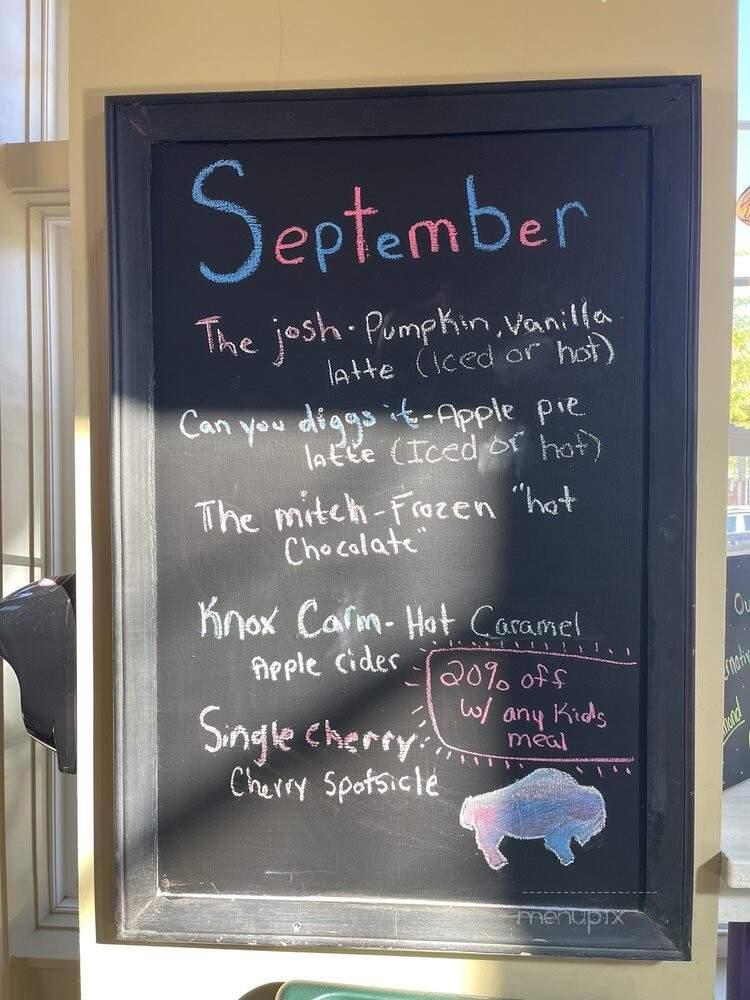 September
The josh - Pumpkin, vanilla
latte (Iced or hot)
Can you diggs it - Apple pie
latte (Iced or hot)
The mitch - Frozen "hot
Chocolate"
Knox Carm - Hot Caramel
Apple cider
20% off
w/ any Kids
meal
Single cherry:
Cherry Spotsicle
menupix